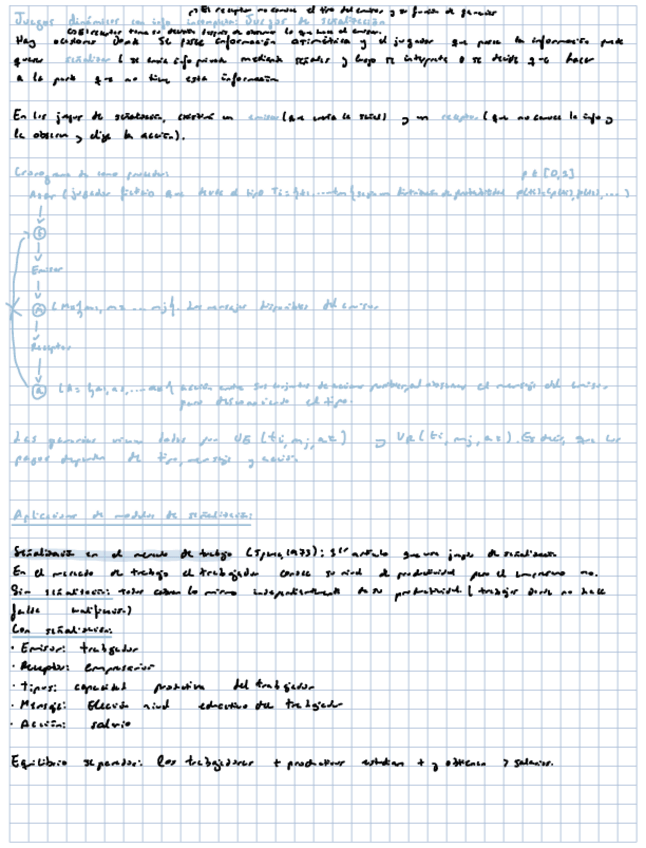 → El receptor no conoce el tipo del emisor y su función de ganancias
Juegos dinámicos con info incompleta: Juegos de señalización
El receptor toma su decisión después de observar lo que hace el emisor.
Hay ocasiones donde se posee información asimétrica y el jugador que posee la información puede
querer señalizar (se envía info privada mediante señales y luego se interpreta o se decide que hacer
a la parte que no tiene esta información
En los juegos de señalización, existirá un emisor (que envía la señal) y un receptor (que no conoce la info y
la observa y elige la acción).
Cronograma de como proceden:
Azar (jugador ficticio que decide el tipo Ti = según una distribución de probabilidad
Emisor
Los mensajes disponibles del emisor
Receptor
acción entre sus conjuntos de acciones posibles, al observar el mensaje del emisor
pero desconociendo el tipo.
Las ganancias vienen dadas por UE (ti, mj, az) y UR (ti, mj, az). Es decir, que los
pagos dependen de tipo, mensaje y acción.
Aplicaciones de modelos de señalización:
Señalización en el mercado de trabajo (Spence, 1973): 1er artículo que usa juegos de señalización
En el mercado de trabajo el trabajador conoce su nivel de productividad pero el empresario no.
Sin señalización: todos cobran lo mismo independientemente de su productividad (trabajos donde no hace
falta cualificación)
Con señalización:
· Emisor: trabajador
· Receptor: empresarios
· Tipos: capacidad productiva del trabajador
· Mensaje: Elección nivel educativo del trabajador
· Acción: salario
Equilibrio separador: los trabajadores + productivos estudian + y obtienen > salarios.